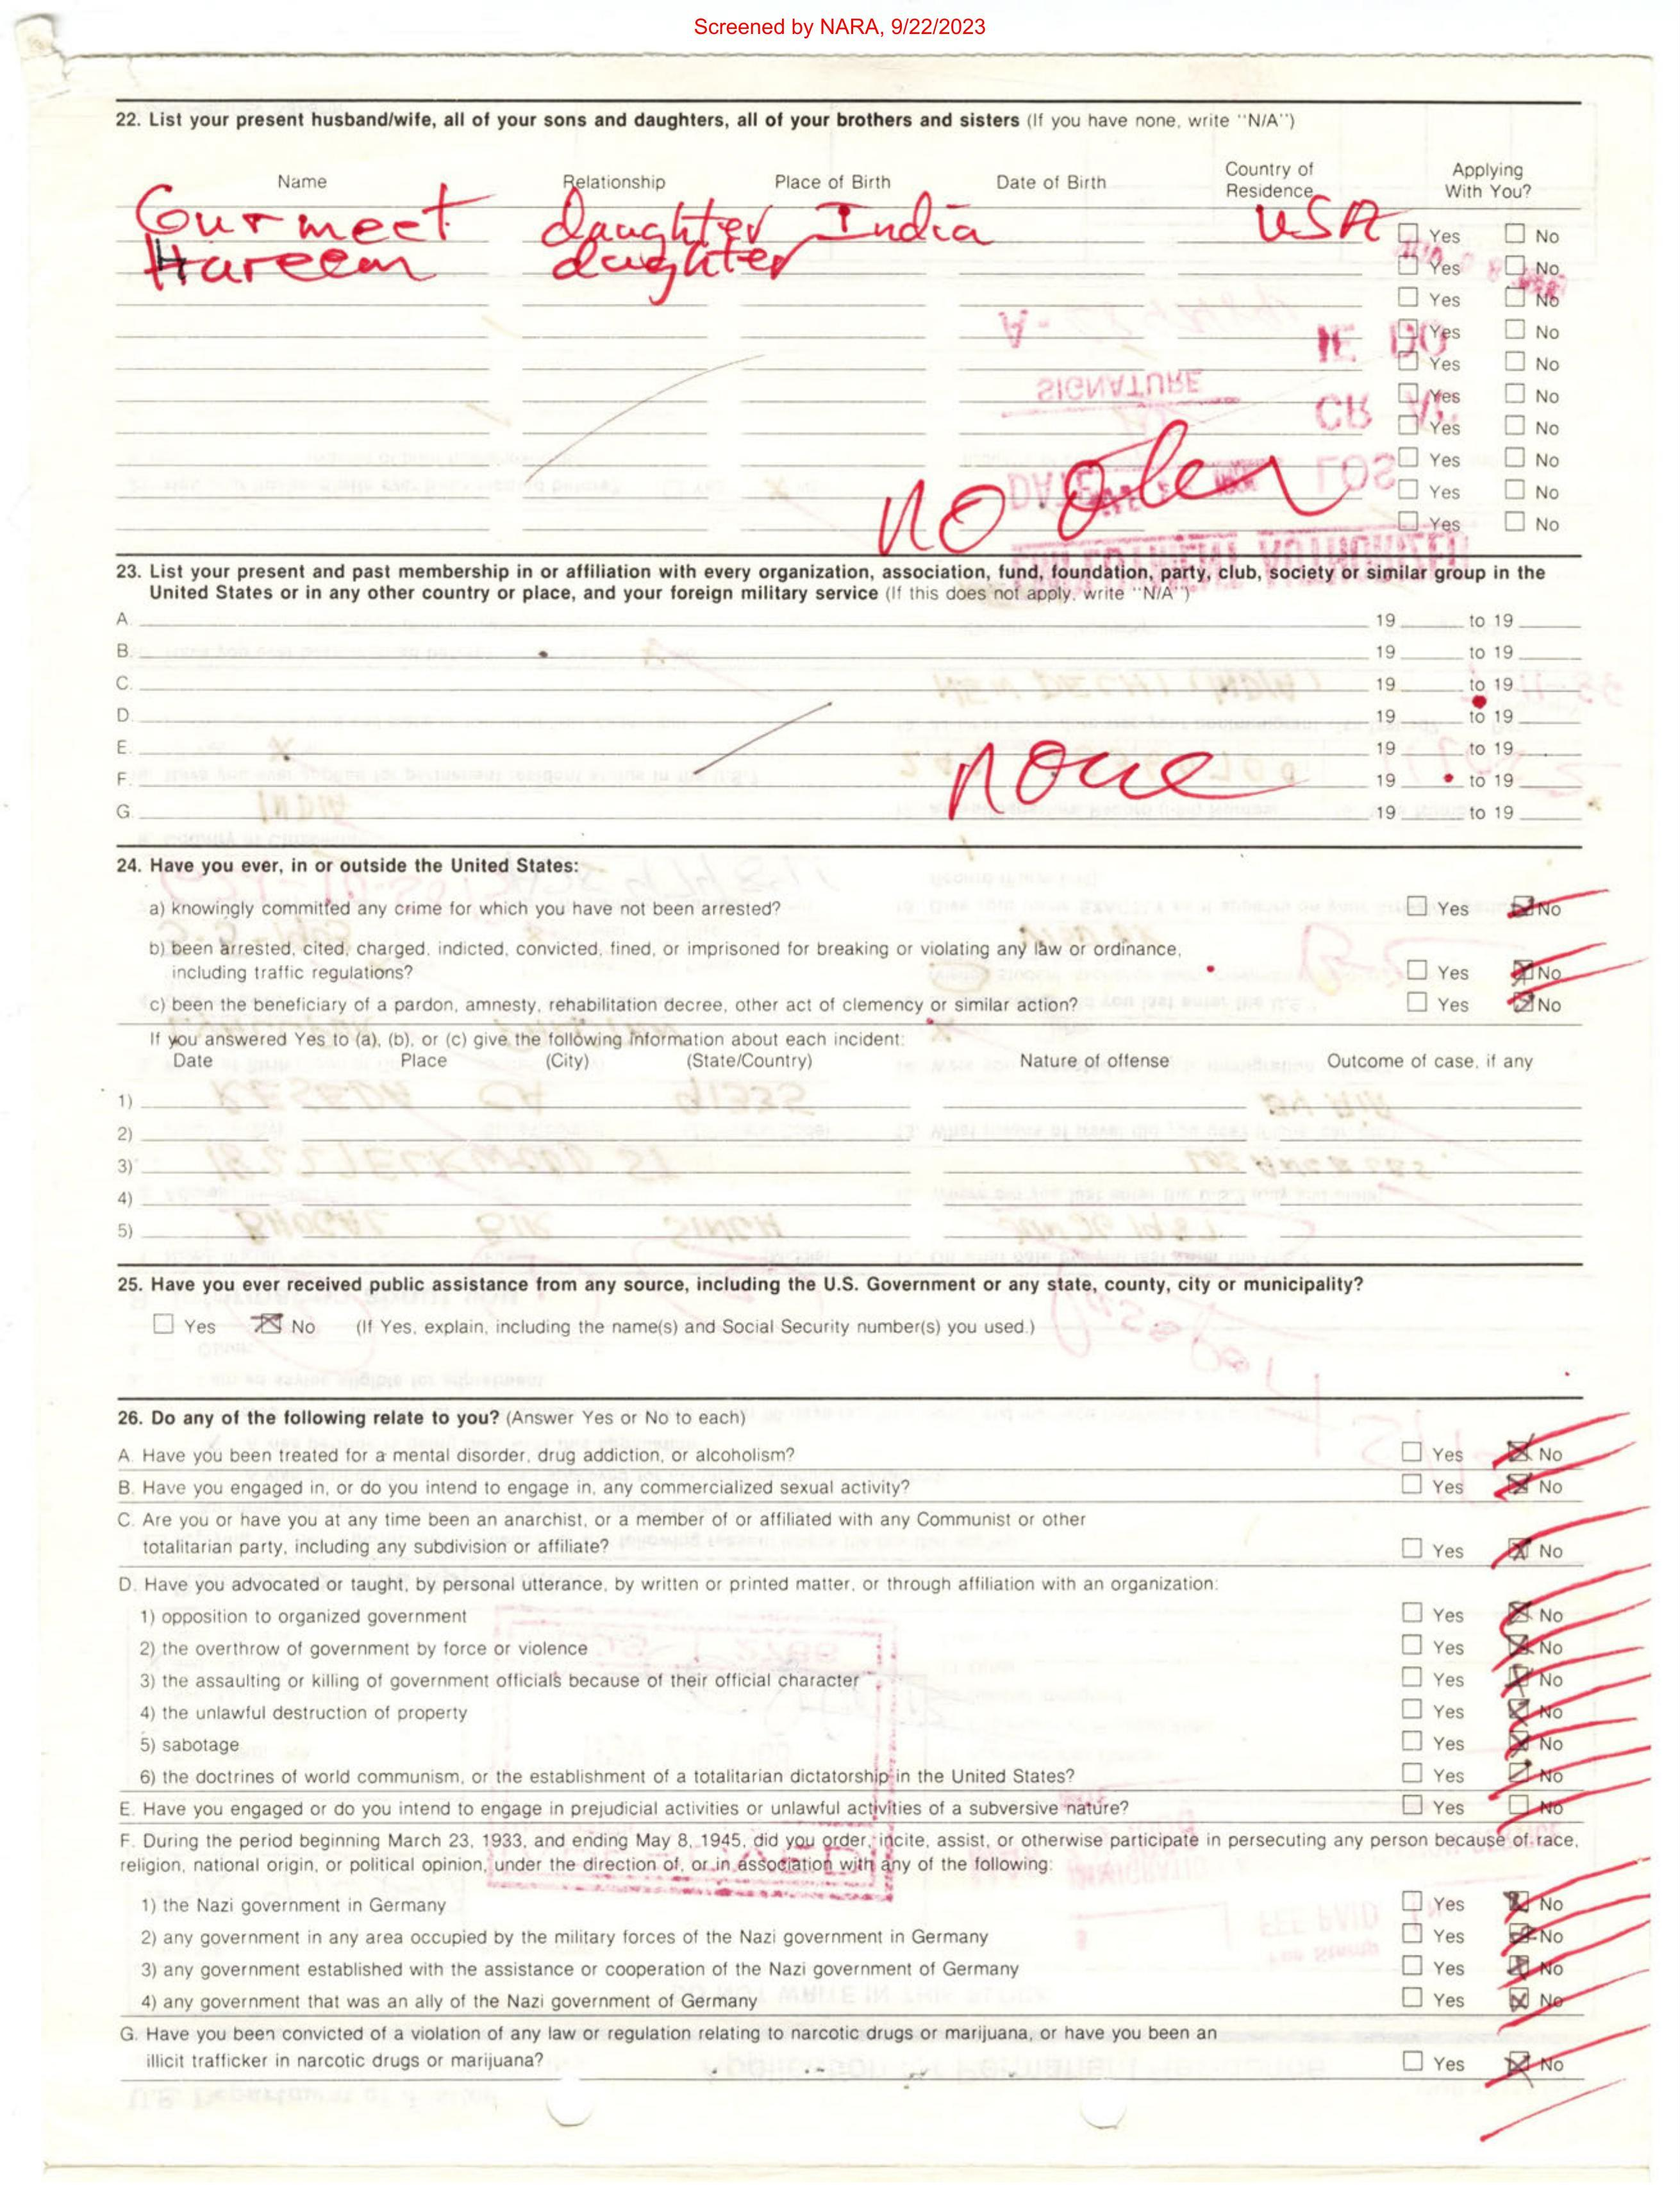 Screened by NARA, 9/22/2023
22. List your present husband/wife, all of your sons and daughters, all of your brothers and sisters (If you have none, write "N/A")
Name Relationship Place of Birth Date of Birth Country of Residence Applying With You?
Gurmeet daughter India USA Yes No
Hareem daughter Yes No
Yes No
Yes No
Yes No
Yes No
Yes No
Yes No
Yes No
no Yes No
23. List your present and past membership in or affiliation with every organization, association, fund, foundation, party, club, society or similar group in the
United States or in any other country or place, and your foreign military service (If this does not apply, write "N/A")
A. 19 to 19
B. 19 to 19
C. 19 to 19
D. 19 to 19
E. 19 to 19
F. none 19 to 19
G. 19 to 19
24. Have you ever, in or outside the United States:
a) knowingly committed any crime for which you have not been arrested? Yes No
b) been arrested, cited, charged, indicted, convicted, fined, or imprisoned for breaking or violating any law or ordinance,
including traffic regulations? Yes No
c) been the beneficiary of a pardon, amnesty, rehabilitation decree, other act of clemency or similar action? Yes No
If you answered Yes to (a), (b), or (c) give the following information about each incident:
Date Place (City) (State/Country) Nature of offense Outcome of case, if any
1)
2)
3)
4)
5)
25. Have you ever received public assistance from any source, including the U.S. Government or any state, county, city or municipality?
Yes No (If Yes, explain, including the name(s) and Social Security number(s) you used.)
26. Do any of the following relate to you? (Answer Yes or No to each)
A. Have you been treated for a mental disorder, drug addiction, or alcoholism? Yes No
B. Have you engaged in, or do you intend to engage in, any commercialized sexual activity? Yes No
C. Are you or have you at any time been an anarchist, or a member of or affiliated with any Communist or other
totalitarian party, including any subdivision or affiliate? Yes No
D. Have you advocated or taught, by personal utterance, by written or printed matter, or through affiliation with an organization:
1) opposition to organized government Yes No
2) the overthrow of government by force or violence Yes No
3) the assaulting or killing of government officials because of their official character Yes No
4) the unlawful destruction of property Yes No
5) sabotage Yes No
6) the doctrines of world communism, or the establishment of a totalitarian dictatorship in the United States? Yes No
E. Have you engaged or do you intend to engage in prejudicial activities or unlawful activities of a subversive nature? Yes No
F. During the period beginning March 23, 1933, and ending May 8, 1945, did you order, incite, assist, or otherwise participate in persecuting any person because of race,
religion, national origin, or political opinion, under the direction of, or in association with any of the following:
1) the Nazi government in Germany Yes No
2) any government in any area occupied by the military forces of the Nazi government in Germany Yes No
3) any government established with the assistance or cooperation of the Nazi government of Germany Yes No
4) any government that was an ally of the Nazi government of Germany Yes No
G. Have you been convicted of a violation of any law or regulation relating to narcotic drugs or marijuana, or have you been an
illicit trafficker in narcotic drugs or marijuana? Yes No